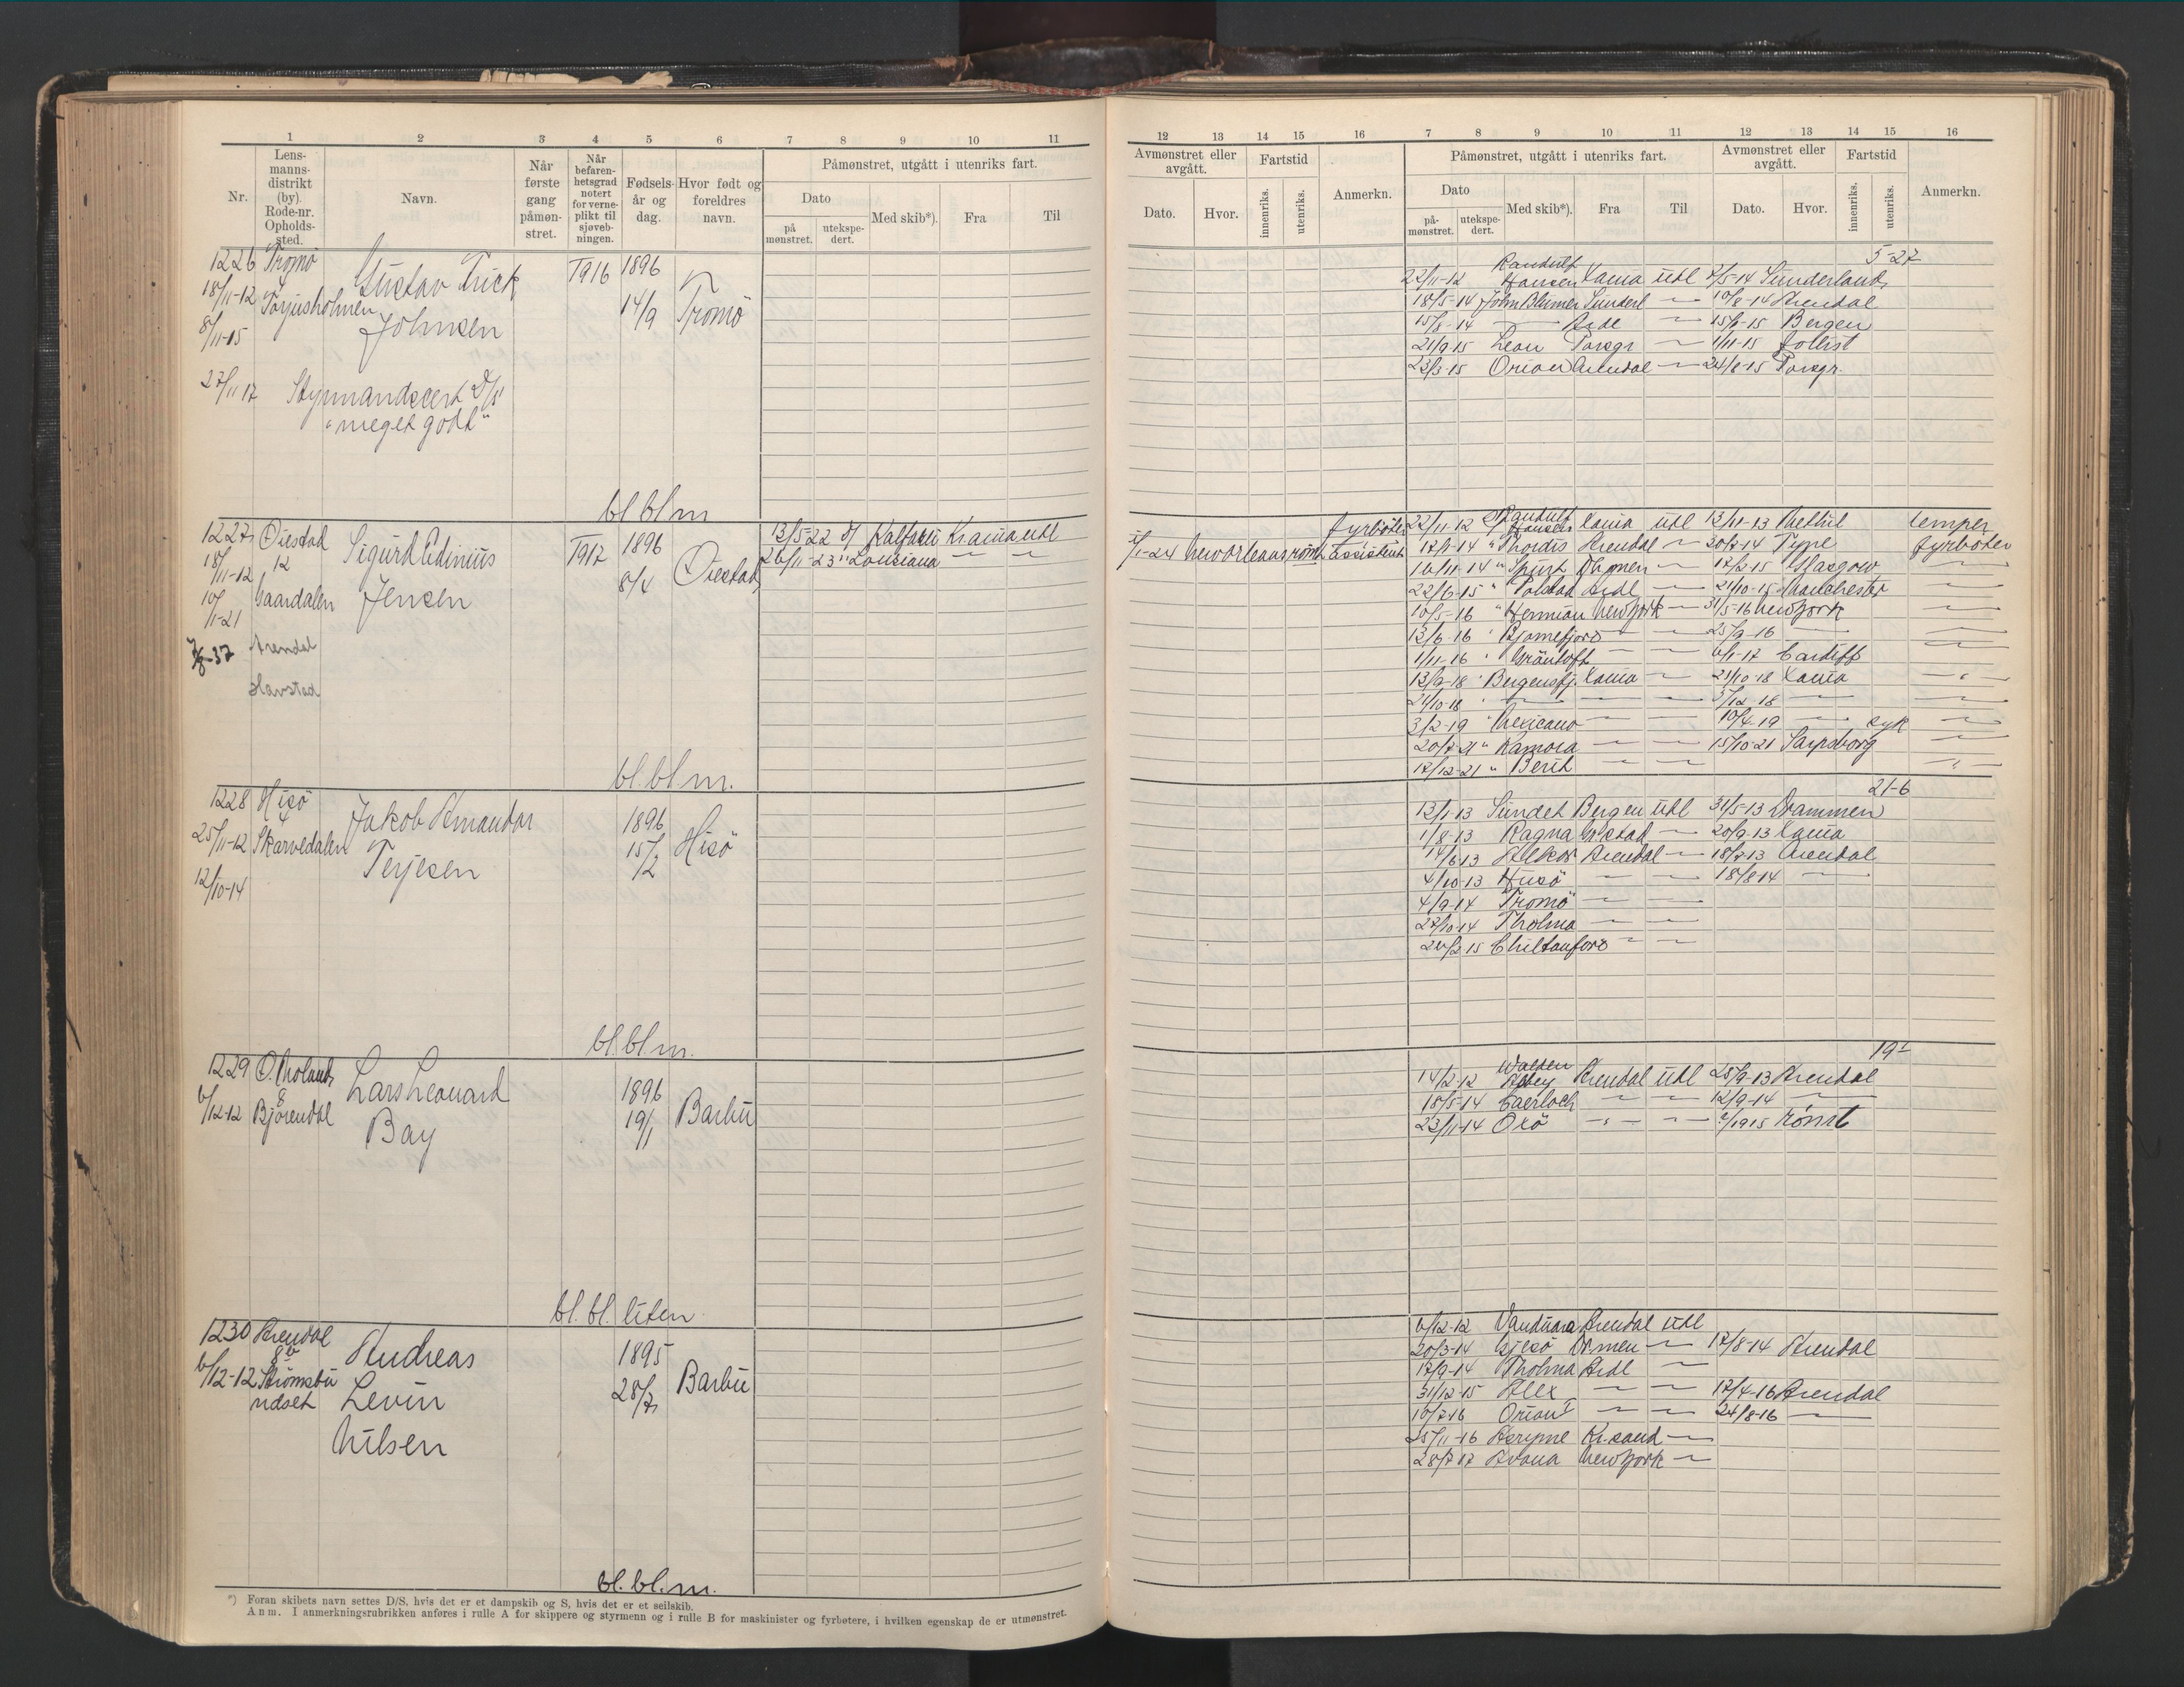 1 2 3 4 5 6 7 8 9 10 11
Nr.
Lens-
manns-
distrikt
(by).
Rode-nr.
Opholds-
sted.
Navn.
Når
første
gang
påmøn-
stret.
Når
befaren-
hetsgrad
notert
for verne-
plikt til
sjøveb-
ningen.
Fødsels-
år og
dag.
Hvor født og
foreldres
navn.
Påmønstret, utgått i utenriks fart.
Dato
på
mønstret.
utekspe-
dert.
Med skib*).
Fra
Til
1226 Tromø
18/11-12 4
Torjusholmen
8/11-15
27/11 17
Gustav Trick
Johnsen
T916 1896
14/9 Tromö
Stymandscert D/S
"meget godt"
bl bl m
1227 Øiestad
18/11-12 12
Gaardalen
10/1-21
Arendal
Sigurd Edinius
Jensen
T917 1896
8/4 Öiestad
13/5-22 Kalfarli Krania utl
26/11-23 " Louisiana — —
bl. bl m.
1228 Hisö
4
25/11-12 Skarvedalen
12/10-14
Jakob Amandus
Terjesen
1896
15/2 Hisö
bl. bl m.
1229 Ö. Moland
8
6/12-12 Bjorendal
Lars Leonard
Bay
1896
19/1 Barbu
bl. bl. liten
1230 Arendal
8b
6/12-12 Strömsbu
ndset
Andreas
Levin
Nilsen
1895
28/7 Barbu
bl. bl. m.
*) Foran skibets navn settes D/S, hvis det er et dampskib og S, hvis det er et seilskib.
Anm. I anmerkningsrubrikken anføres i rulle A for skippere og styrmenn og i rulle B for maskinister og fyrbøtere, i hvilken egenskap de er utmønstret.
12 13 14 15 16 7 8 9 10 11 12 13 14 15 16
Avmønstret eller
avgått.
Dato. Hvor.
Fartstid
innenriks.
utenriks.
Anmerkn.
Påmønstret, utgått i utenriks fart.
Dato
på-
mønstret.
utekspe-
dert.
Med skib*).
Fra
Til
Avmønstret eller
avgått.
Dato. Hvor.
Fartstid
innenriks.
utenriks.
Anmerkn.
5-27
22/11-12 Randulf Hansen Xania utl 2/5-14 Sunderland
18/5-14 John Blumer Sunderl — 10/8-14 Arendal
15/8-14 — Ardl — 15/6-15 Bergen
21/9 15 Leon Porsgr — 1/11-15
23/3-15 Orion Arendal — 24/8-15 Porsgr.
fyrböter
/1-24 New Orleans römt assistent
22/11-12 Randulf Hansen Xania utl 13/11-13 Methil lemper
17/1-14 " Thordis Arendal — 30/7-14 Tyne fyrböter
16/11-14 " Spurt — 17/2-15 Glasgow —
22/6-15 " Polstad Ardl — 21/10-15 Manchester —
10/5-16 " Hermion New York — 31/5-16 New York —
13/6-16 " Bjornefjord — — 25/9-16 — —
1/11-16 " Gräntoft — — 6/1-17 Cardiff —
13/9-18 " Bergensfj. Xania — 21/10-18 Xania —
21/10-18 — — — 3/12-18 — —
3/2-19 " Mexicano — — 10/4-19 — syk —
20/7-21 " Ramora — — 15/10-21 Sarpsborg —
17/12-21 " Berit — — —
21-6
13/1-13 Sundet Bergen utl 31/5-13 Drammen
1/8-13 Ragna — 20/9-13 Xania
14/6 13 Arendal — 18/7-13 Arendal
4/10-13 Husö — — 18/8 14 —
4/9-14 Tromö — —
27/10-14 Tholma — —
20/2 15 Chiltonford — —
19-
14/2-12 Walden Abbey Arendal utl 25/9-13 Arendal
18/5-14 Caerloch — — 12/9-14 —
23/11-14 Oxö — — /1915 römt
6/12-12 Vanduara Arendal utl
20/3-14 Gjesö Dr.men — 17/8-14 Arendal
17/9-14 Tholma Ardl —
31/12-15 Alex — — 17/4-16 Arendal
10/7 16 Orion I — — 24/8-16 —
25/11-16 Kr.sand —
28/7 17 Avona New York —